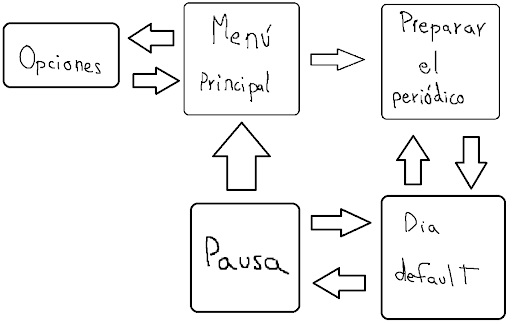 Opciones
Menú
Principal
Preparar
el
periódico
Pausa
Dia
default